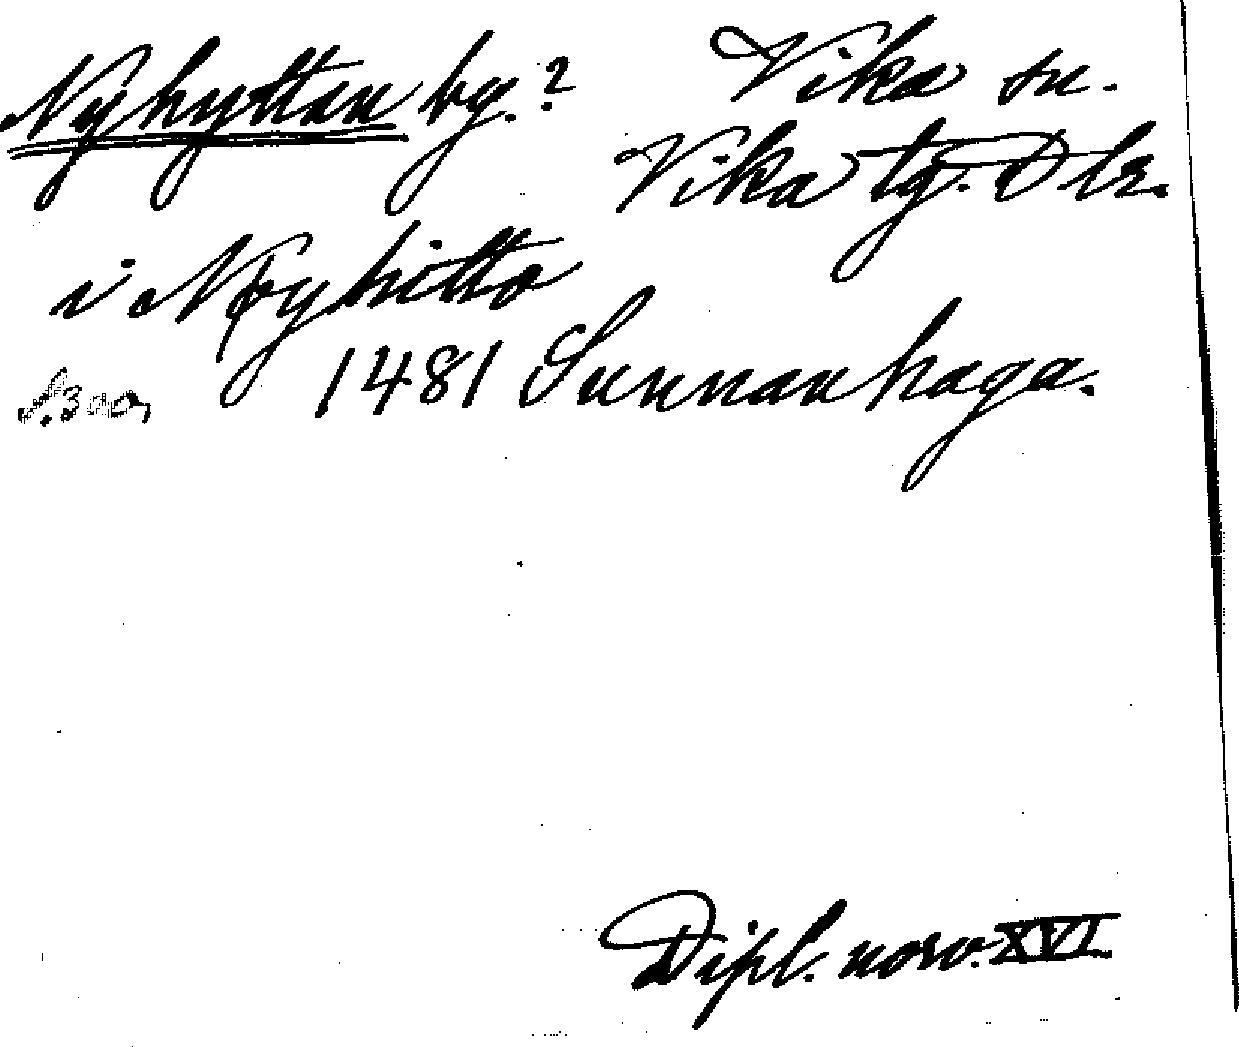 Nyhyttan by.? Vika sn.
Vika tg. Dlr.
i Nøyhitto
S. 300, 1481 Sunnanhaga.
Dipl. norv. XVI.